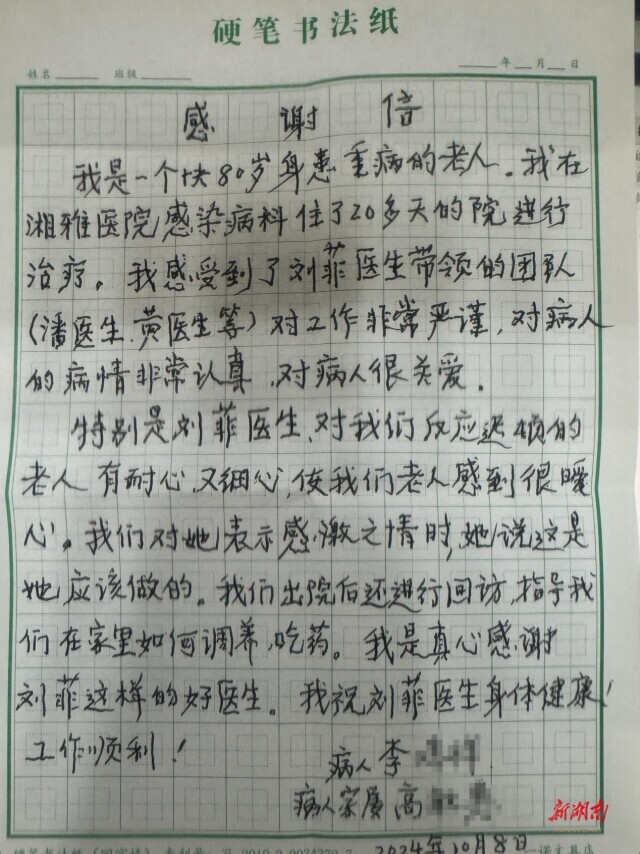 硬笔书法纸
姓名 班级 年 月 日
感谢信
我是一个快80岁身患重病的老人。我在
湘雅医院感染病科住了20多天的院进行
治疗。我感受到了刘菲医生带领的团队
(潘医生.黄医生等)对工作非常严谨,对病人
的病情非常认真,对病人很关爱。
特别是刘菲医生、对我们反应迟顿的
老人有耐心,又细心,使我们老人感到很暖
心。我们对她表示感激之情时,她说这是
她应该做的。我们出院后还进行回访,指导我
们在家里如何调养,吃药。我是真心感谢
刘菲这样的好医生。我祝刘菲医生身体健康!
工作顺利!
病人 李
病人家属 高
2024年10月8日
新湖南